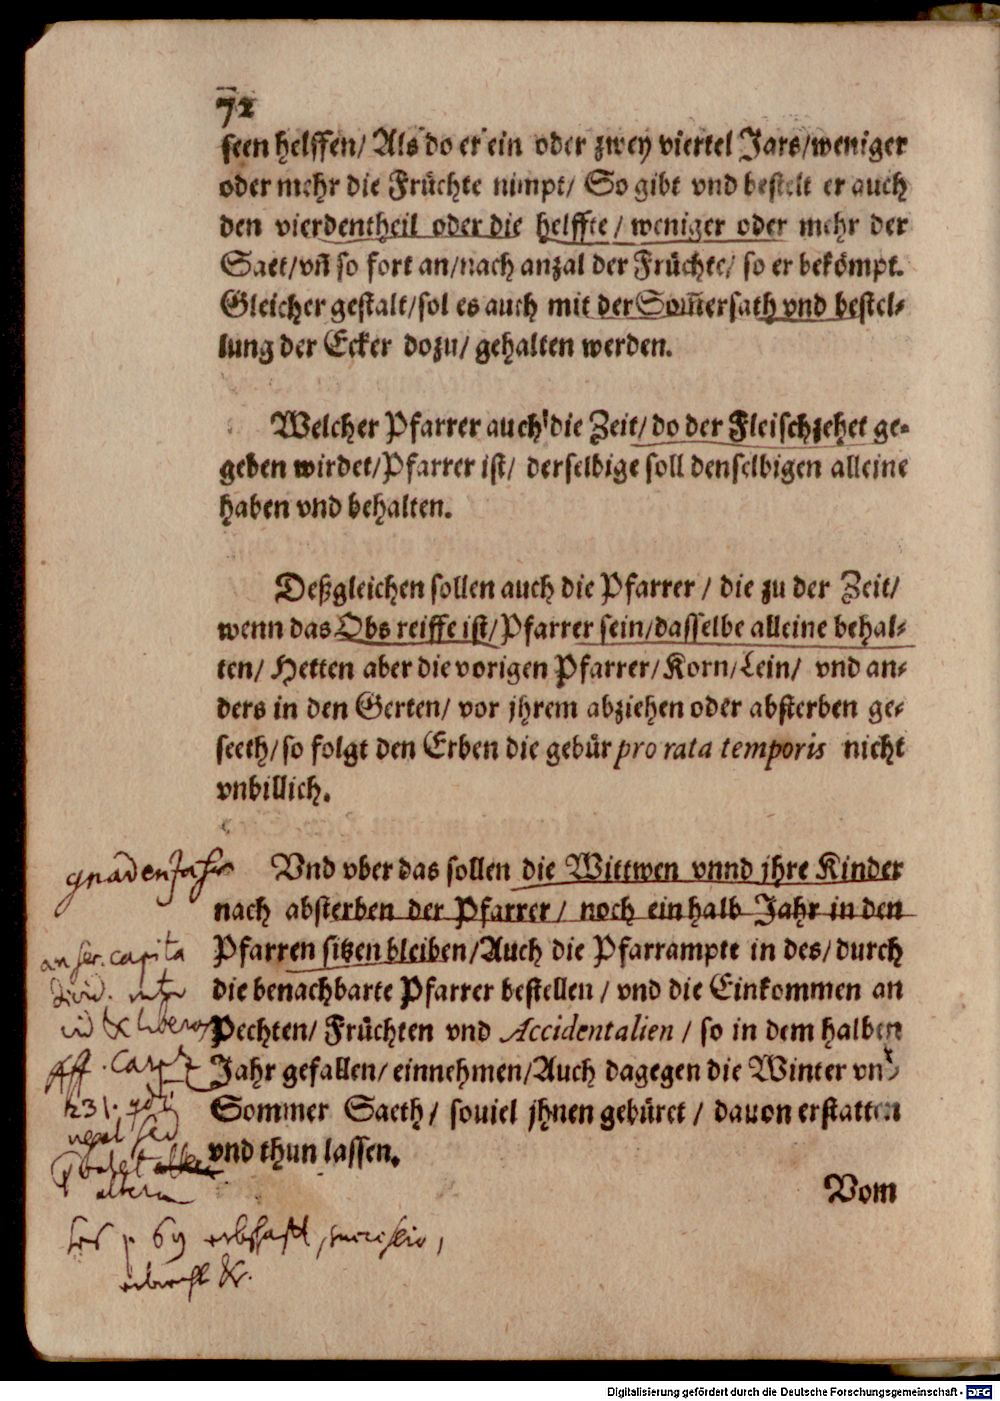 72
seen helffen/ Als do er ein oder zwey viertel Jars/weniger
oder mehr die Früchte nimpt/ So gibt vnd bestelt er auch
den vierdentheil oder die helffte/ weniger oder mehr der
Saet/vn̄ so fort an/nach anzal der Früchte/ so er bekömpt.
Gleicher gestalt/sol es auch mit der Som̄ersath vnd bestel-
lung der Ecker dozu/ gehalten werden.
Welcher Pfarrer auch die Zeit/do der Fleischzehet ge-
geben wirdet/Pfarrer ist/ derselbige soll denselbigen alleine
haben vnd behalten.
Deßgleichen sollen auch die Pfarrer / die zu der Zeit/
wenn das Obs reiffe ist/Pfarrer sein/dasselbe alleine behal-
ten/ Hetten aber die vorigen Pfarrer/Korn/Lein/ vnd an-
ders in den Gerten/ vor jhrem abziehen oder absterben ge-
seeth/so folgt den Erben die gebür pro rata temporis nicht
vnbillich.
gnadenJahr
Vnd vber das sollen die Wittwen vnnd jhre Kinder
nach absterben der Pfarrer/ noch ein halb Jahr in den
Pfarren sitzen bleiben/Auch die Pfarrampte in des/durch
die benachbarte Pfarrer bestellen / vnd die Einkommen an
Pechten/ Früchten vnd Accidentalien / so in dem halben
Jahr gefallen/ einnehmen/Auch dagegen die Winter vnd
Sommer Saeth/ souiel jhnen gebüret / dauon erstatten
vnd thun lassen.
an per capita
divid. inter
vid. & liberos
ff. Carpz
negat sed
altera
Vom
p. 69 erbschafft, successio,
erbrecht &c.
Digitalisierung gefördert durch die Deutsche Forschungsgemeinschaft - DFG